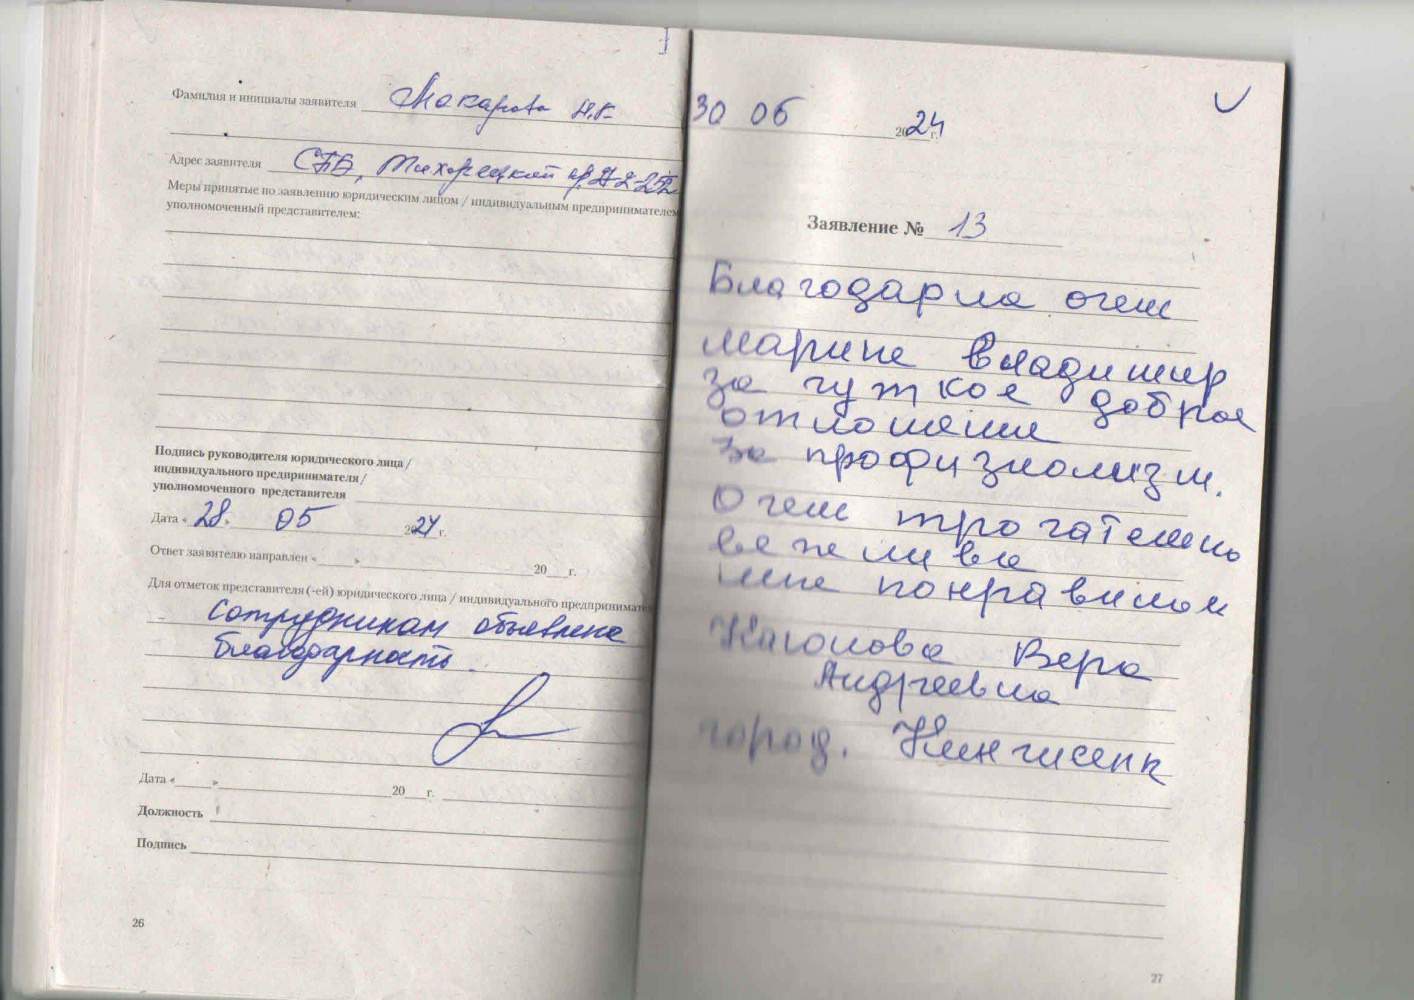 Фамилия и инициалы заявителя Макарова Н.К
Адрес заявителя СПБ, Тихорецкий пр,
Меры принятые по заявлению юридическим лицом / индивидуальным предпринимателем
уполномоченный представителем:
Подпись руководителя юридического лица /
индивидуального предпринимателя /
уполномоченного представителя
Дата « 28 » 05 2024 г.
Ответ заявителю направлен « » 20 г.
Для отметок представителя (-ей) юридического лица / индивидуального предпринимате
Сотрудникам объявлена
благодарность.
Дата « » 20 г.
Должность
Подпись
26
30 06 2024 г.
Заявление № 13
Благодарна очен
марине Владимир
за чуткое доброе
отношения
за профизнолизм.
Очен трогателно
вежлива
мне понравилом
Вера
Андреевна
город. Кингисепп
27